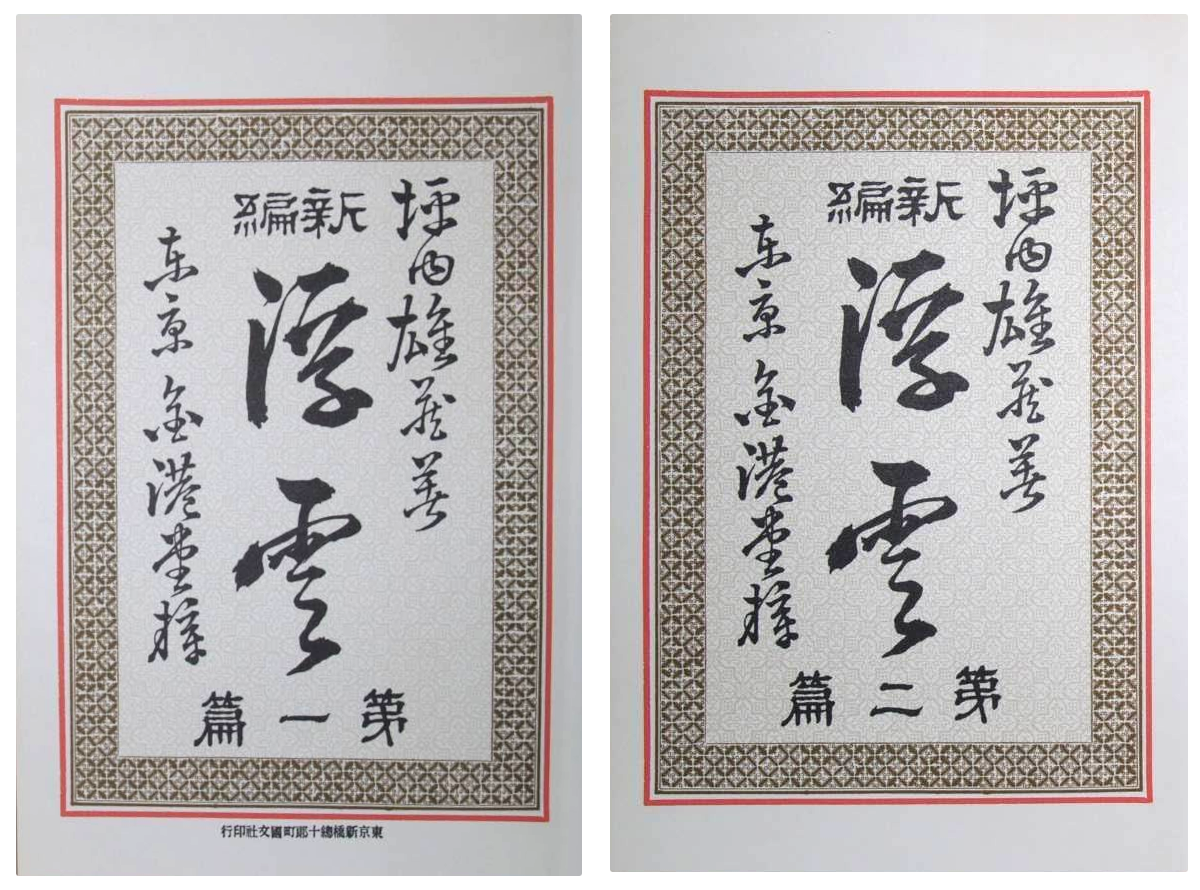 坪内雄藏著
新編
浮雲
第一篇
東京金港堂梓
東京新橋總十郎町國文社印行
坪内雄藏著
新編
浮雲
第二篇
東京金港堂梓